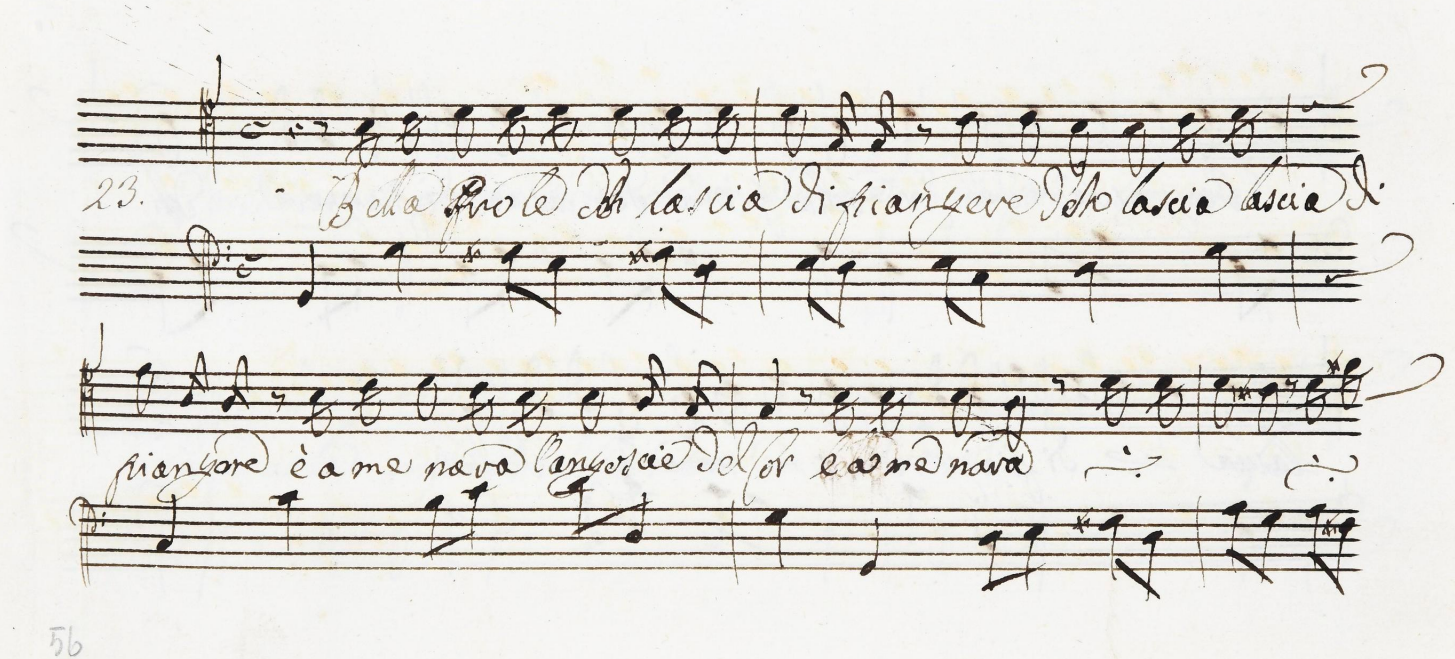 23. Bella Prole deh lascia di piangere deh lascia lascia di
piangere è a me nava l'angoscie del Cor e a me nava
56